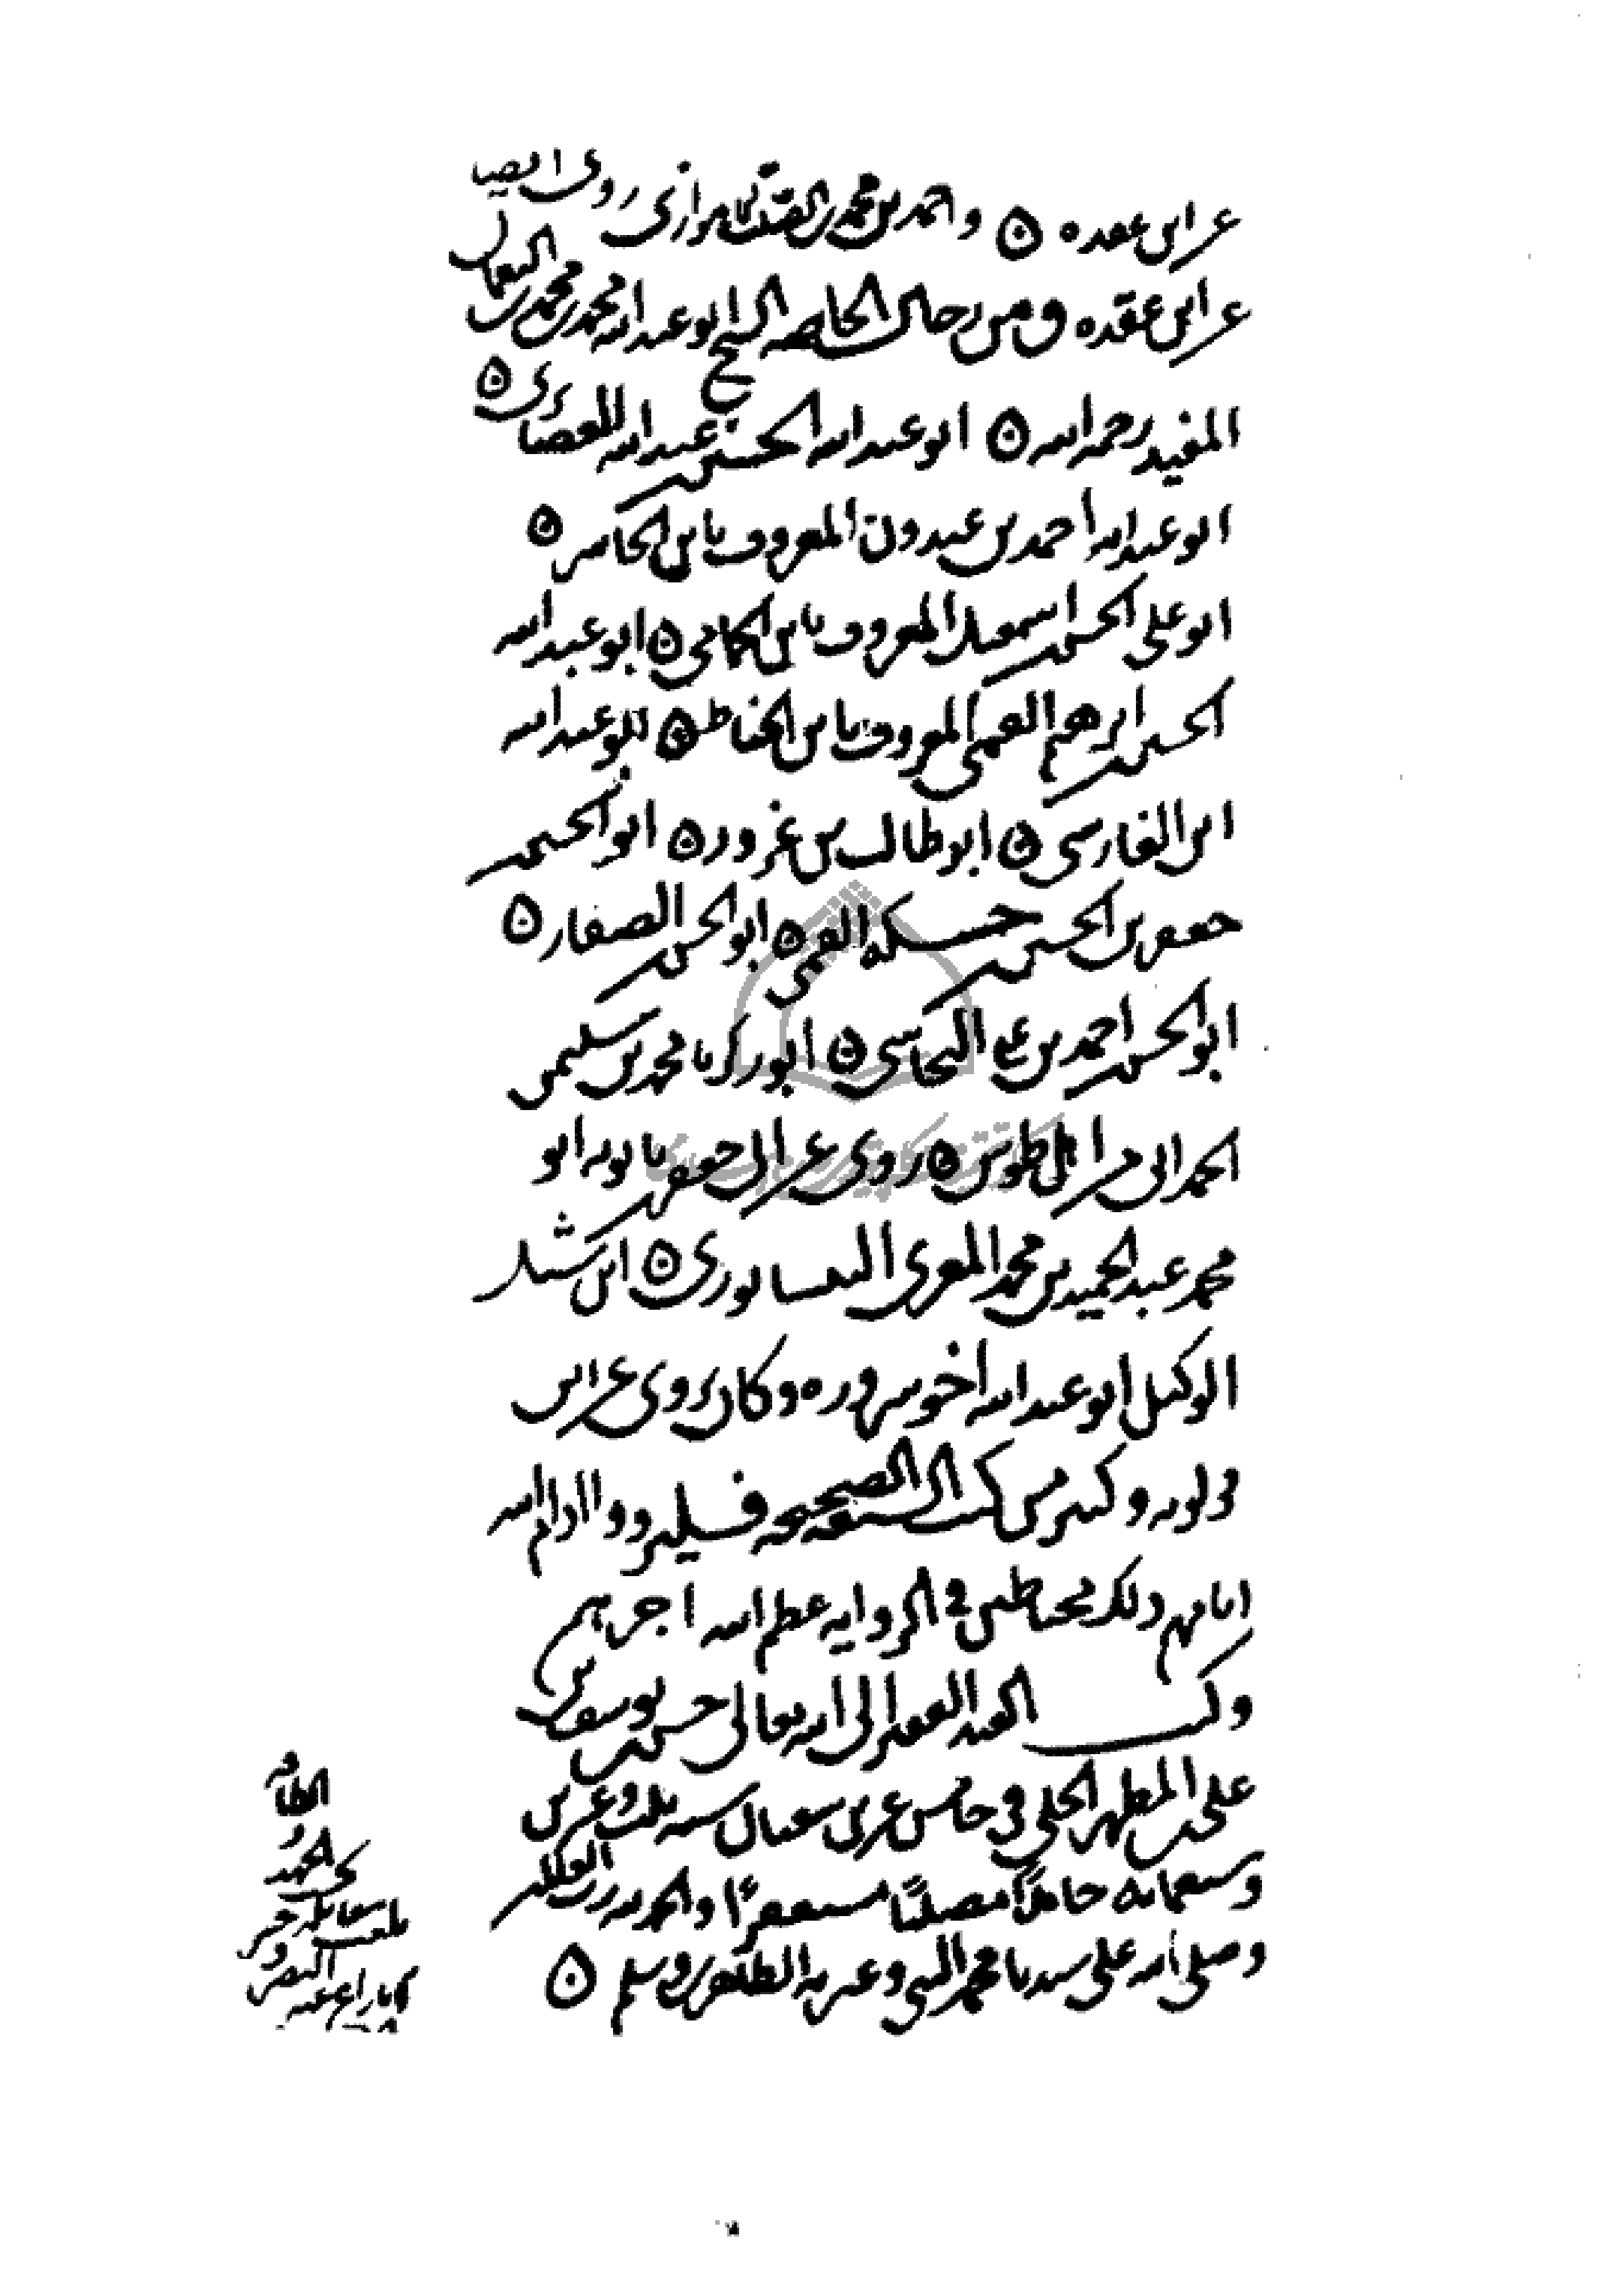 عن ابن عقده ۵ واحمد بن محمد بن الصلت الاهوازى روى ايضا
عن ابن عقده ومن رجال الخاصه الشيخ ابو عبد الله محمد بن محمد بن النعمان
المفيد رحمه الله ۵ ابو عبد الله الحسين بن عبيد الله الغضائرى ۵
ابو عبد الله احمد بن عبدون المعروف بابن الحاشر ۵
ابو على الحسن بن اسمعيل المعروف بابن الحمامى ۵ ابو عبد الله
الحسين بن ابرهيم القمى المعروف بابن الخياط ۵ ابو عبد الله
ابن الفارسى ۵ ابو طالب بن غرور ۵ ابو الحسين بن
جعفر بن الحسين بن حسكه القمى ۵ ابو الحسن الصفار ۵
ابو الحسين بن احمد بن على النجاشى ۵ ابو زكريا محمد بن سليمن
الحمرانى من اهل طوس ۵ روى عن ابى جعفر بن بابويه ابو
محمد عبد الحميد بن محمد المقرى النيسابورى ۵ ابن شبل
الوكيل ابو عبد الله اخو سروره وكان يروى عن ابن
قولويه وكثير من كتب الشيعه الصحيحه فليرووا ادام الله
ايامهم ذلك محتاطين فى الروايه عظم الله اجرهم
وكتب العبد الفقير الى الله تعالى حسن بن يوسف بن
على بن المطهر الحلى فى خامس عشرين شعبان سنه ثلث وعشرين
وسبعمايه حامدًا مصليًا مستغفرًا والحمد لله رب العلمين
وصلى الله على سيدنا محمد النبى وعترته الطاهرين وسلم ۵